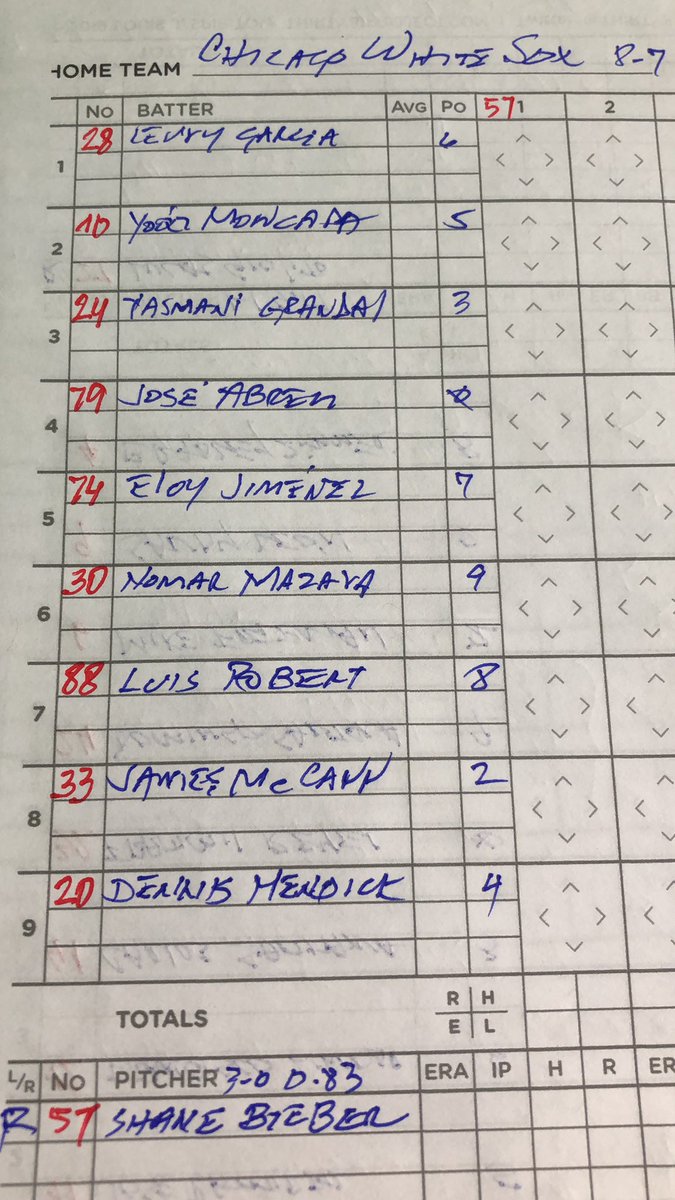 HOME TEAM CHICAGO WHITE SOX 8-7
No BATTER AVG Po 57 1 2
1 28 LEURY GARCIA 6
2 10 Yoán MONCADA 5
3 24 YASMANI GRANDAL 3
4 79 JOSÉ ABREU
5 74 ELOY JIMÉNEZ 7
6 30 NOMAR MAZARA 9
7 88 LUIS ROBERT 8
8 33 JAMES McCANN 2
9 20 DENNIS MENDICK 4
TOTALS R H
E L
L/R NO PITCHER 3-0 0.83 ERA IP H R ER
R 57 SHANE BIEBER